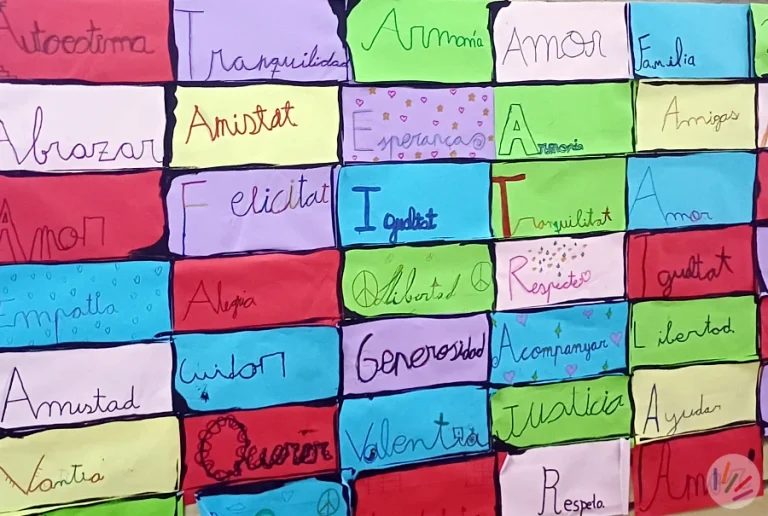 Autoestima
Tranquilidad
Armonía
Amor
Familia
Abrazar
Amistat
Esperança
Armonia
Amigas
Amor
Felicitat
Igualtat
Tranquilitat
Amor
Empatía
Alegria
llibertad
Respecte
Igualtat
Amistad
cuidar
Generosidad
Acompanyar
Libertad
Querer
Valentía
Justicia
Ayudar
Respeto